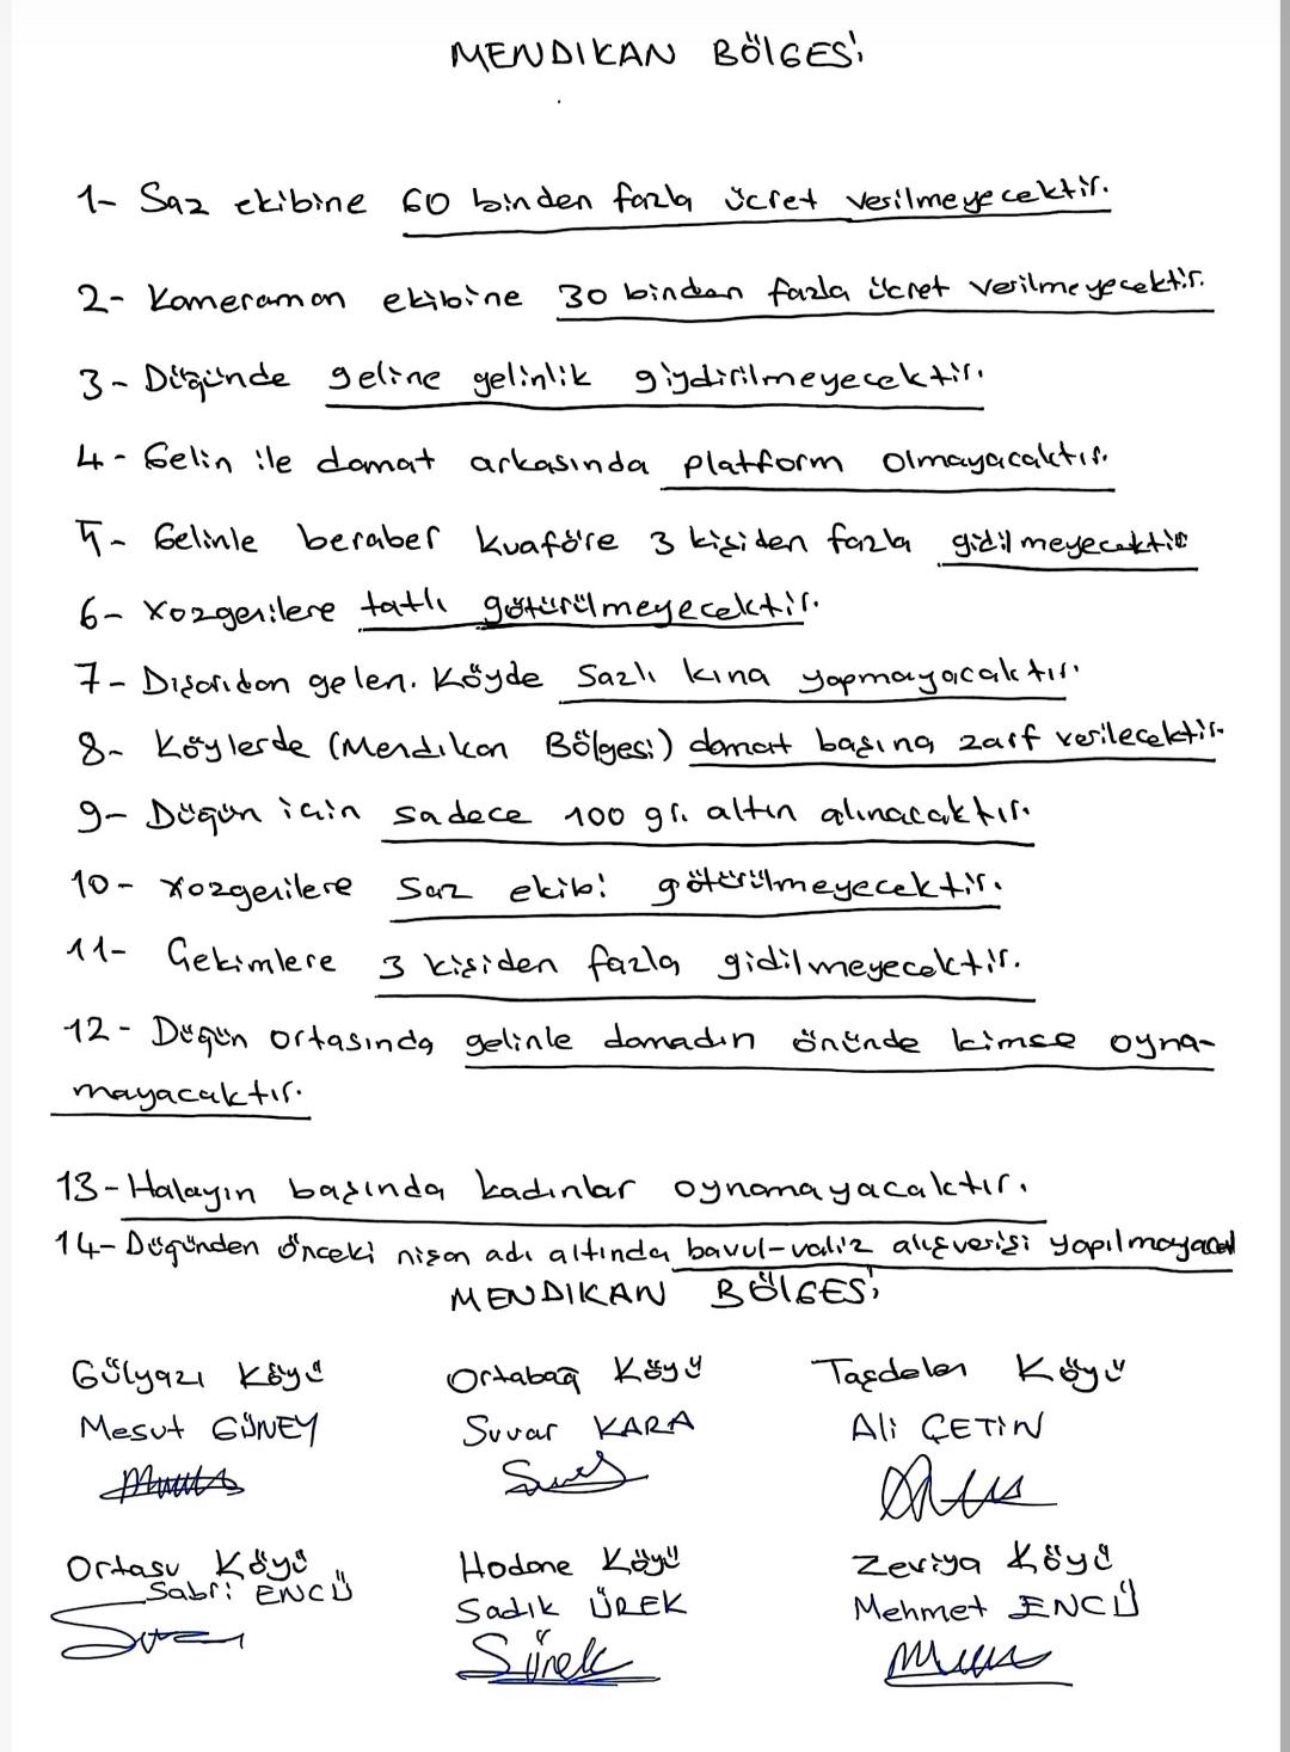 MENDIKAN BÖLGESİ
1- Saz ekibine 60 binden fazla ücret verilmeyecektir.
2- Kameraman ekibine 30 binden fazla ücret verilmeyecektir.
3- Düğünde geline gelinlik giydirilmeyecektir.
4- Gelin ile damat arkasında platform olmayacaktır.
5- Gelinle beraber kuaföre 3 kişiden fazla gidilmeyecektir
6- Xozgenilere tatlı götürülmeyecektir.
7- Dışarıdan gelen. Köyde Sazlı kına yapmayacaktır.
8- Köylerde (Mendıkan Bölgesi) damat başına zarf verilecektir.
9- Düğün için sadece 100 gr. altın alınacaktır.
10- Xozgenilere Saz ekibi götürülmeyecektir.
11- Çekimlere 3 kişiden fazla gidilmeyecektir.
12- Düğün ortasında gelinle damadın önünde kimse oyna-
mayacaktır.
13- Halayın başında kadınlar oynamayacaktır.
14- Düğünden önceki nişan adı altında bavul-valiz alışverişi
MENDIKAN BÖLGESİ
Gülyazı Köyü Ortabağ Köyü Taşdelen Köyü
Mesut GÜNEY Suvar KARA Ali ÇETİN
Ortasu Köyü Hodane Köyü Zeviya Köyü
Sabri ENCÜ Sadık ÜREK Mehmet ENCÜ
Sürek